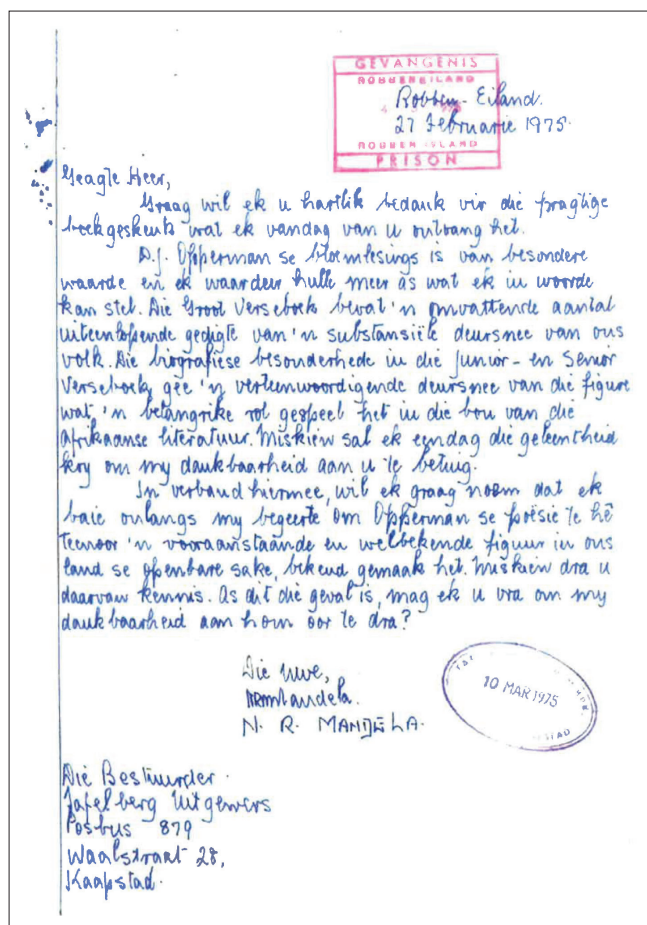 GEVANGENIS
ROBBENEILAND
Robben-Eiland.
27 Februarie 1975.
ROBBEN ISLAND
PRISON
Geagte Heer,
Graag wil ek u hartlik bedank vir die pragtige
boekgeskenk wat ek vandag van u ontvang het.
D.J. Opperman se bloemlesings is van besondere
waarde en ek waardeer hulle meer as wat ek in woorde
kan stel. Die Groot Verseboek bevat 'n omvattende aantal
uiteenlopende gedigte van 'n substansiële deursnee van ons
volk. Die biografiese besonderhede in die Junior- en Senior
Verseboek gee 'n verteenwoordigende deursnee van die figure
wat 'n belangrike rol gespeel het in die bou van die
Afrikaanse literatuur. Miskien sal ek eendag die geleentheid
kry om my dankbaarheid aan u te betuig.
In verband hiermee, wil ek graag noem dat ek
baie onlangs my begeerte om Opperman se poësie te hê
teenoor 'n vooraanstaande en welbekende figuur in ons
land se openbare sake, bekend gemaak het. Miskien dra u
daarvan kennis. As dit die geval is, mag ek u vra om my
dankbaarheid aan hom oor te dra?
Die uwe,
NRMandela.
N. R. MANDELA.
10 MAR 1975
Die Bestuurder.
Tafelberg Uitgewers
Posbus 879
Waalstraat 28,
Kaapstad.